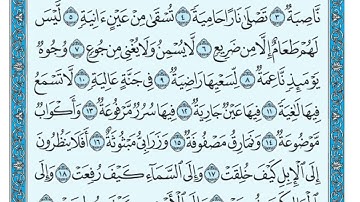 نَّاصِبَةٌ ٣ تَصْلَىٰ نَارًا حَامِيَةً ٤ تُسْقَىٰ مِنْ عَيْنٍ ءَانِيَةٍ ٥ لَّيْسَ
لَهُمْ طَعَامٌ إِلَّا مِن ضَرِيعٍ ٦ لَّا يُسْمِنُ وَلَا يُغْنِي مِن جُوعٍ ٧ وُجُوهٌ
يَوْمَئِذٍ نَّاعِمَةٌ ٨ لِّسَعْيِهَا رَاضِيَةٌ ٩ فِي جَنَّةٍ عَالِيَةٍ ١٠ لَّا تَسْمَعُ
فِيهَا لَٰغِيَةً ١١ فِيهَا عَيْنٌ جَارِيَةٌ ١٢ فِيهَا سُرُرٌ مَّرْفُوعَةٌ ١٣ وَأَكْوَابٌ
مَّوْضُوعَةٌ ١٤ وَنَمَارِقُ مَصْفُوفَةٌ ١٥ وَزَرَابِيُّ مَبْثُوثَةٌ ١٦ أَفَلَا يَنظُرُونَ
إِلَى الْإِبِلِ كَيْفَ خُلِقَتْ ١٧ وَإِلَى السَّمَاءِ كَيْفَ رُفِعَتْ ١٨